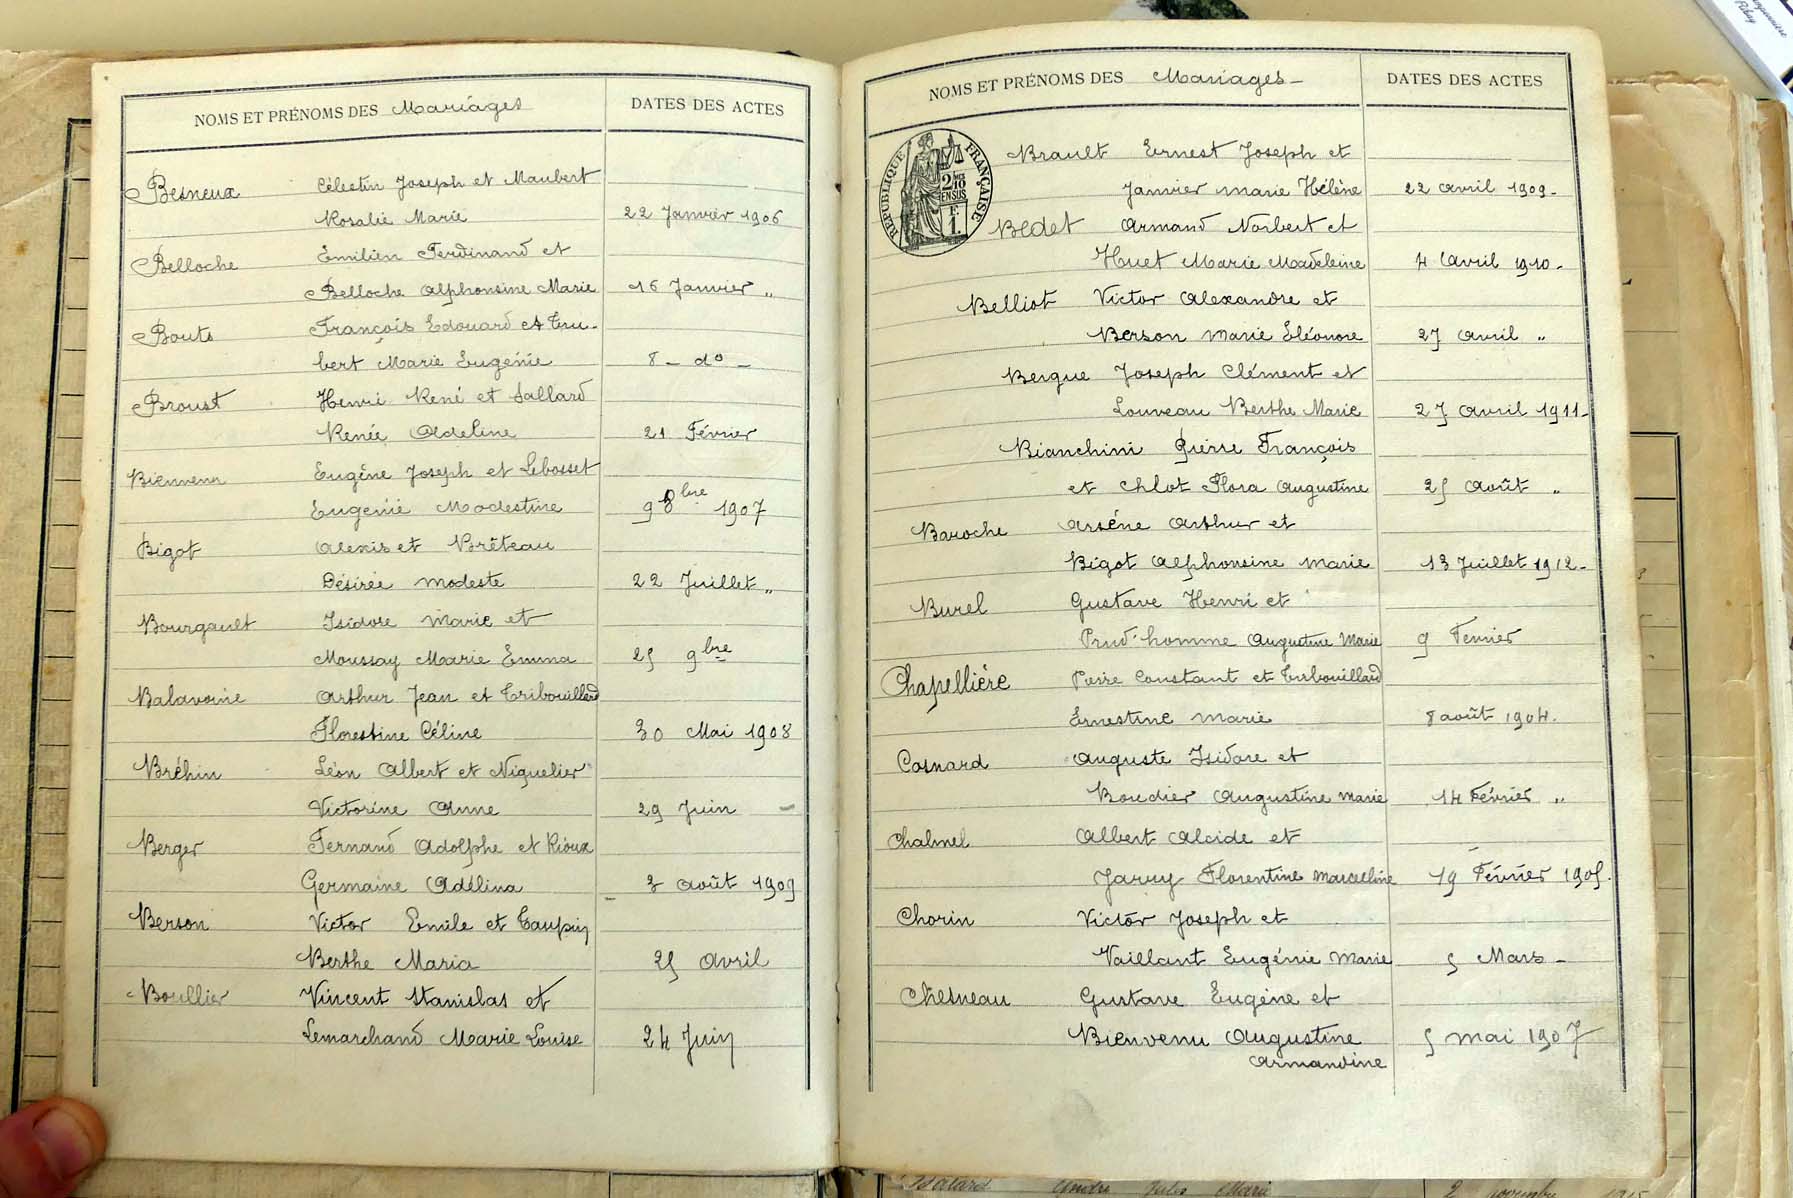 NOMS ET PRÉNOMS DES Mariages DATES DES ACTES
Besneux Célestin Joseph et Maubert
Rosalie Marie 22 Janvier 1906
Belloche Emilien Ferdinand et
Belloche Alphonsine Marie 16 Janvier "
Bouts François Edouard et Tru-
bert Marie Eugénie 8 - do -
Broust Henri René et Sallard
Renée Adeline 21 Février
Bienvenu Eugène Joseph et Lebosset
Eugénie Modestine 9 8bre 1907
Bigot Alexis et Brêteau
Désirée Modeste 22 Juillet "
Bourgault Isidore Marie et
Moussay Marie Emma 25 9bre
Balavoine Arthur Jean et Tribouillard
Florestine Céline 30 Mai 1908
Bréhin Léon Albert et Niguelier
Victorine Anne 29 Juin -
Berger Fernand Adolphe et Rioux
Germaine Adélina 3 août 1909
Berson Victor Emile et Taupin
Berthe Maria 25 avril
Boullier Vincent Stanislas et
Lemarchand Marie Louise 24 Juin
NOMS ET PRÉNOMS DES Mariages - DATES DES ACTES
RÉPUBLIQUE FRANÇAISE
2/10
EN SUS
F.
1.
Brault Ernest Joseph et
Janvier Marie Hélène 22 avril 1909 -
Bedet Armand Norbert et
Huet Marie Madeleine 4 avril 1910 -
Belliot Victor Alexandre et
Berson Marie Eléonore 27 avril "
Bergue Joseph Clément et
Louveau Berthe Marie 27 avril 1911 -
Bianchini Pierre François
et Chlot Flora Augustine 25 Août "
Baroche Arsène Arthur et
Bigot Alphonsine Marie 13 Juillet 1912 -
Burel Gustave Henri et
Prud'homme Augustine Marie 9 Fevrier
Chapellière Pierre Constant et Tribouillard
Ernestine Marie 8 août 1904.
Cosnard Auguste Isidore et
Boudier Augustine Marie 14 Février "
Chalmel Albert Alcide et
Jarry Florentine Marcelline 19 Février 1905.
Chorin Victor Joseph et
Vaillant Eugénie Marie 5 Mars -
Chesneau Gustave Eugène et
Bienvenu Augustine 5 mai 1907
Armandine